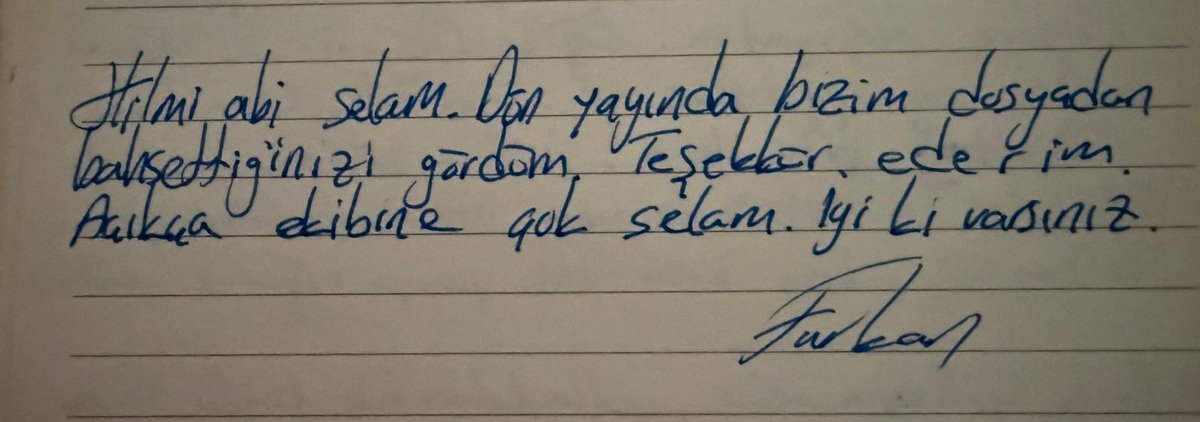 Hilmi abi selam. Dün yayında bizim dosyadan
bahsettiğinizi gördüm. Teşekkür ederim.
Açıkça ekibine çok selam. İyi ki varsınız.
Furkan